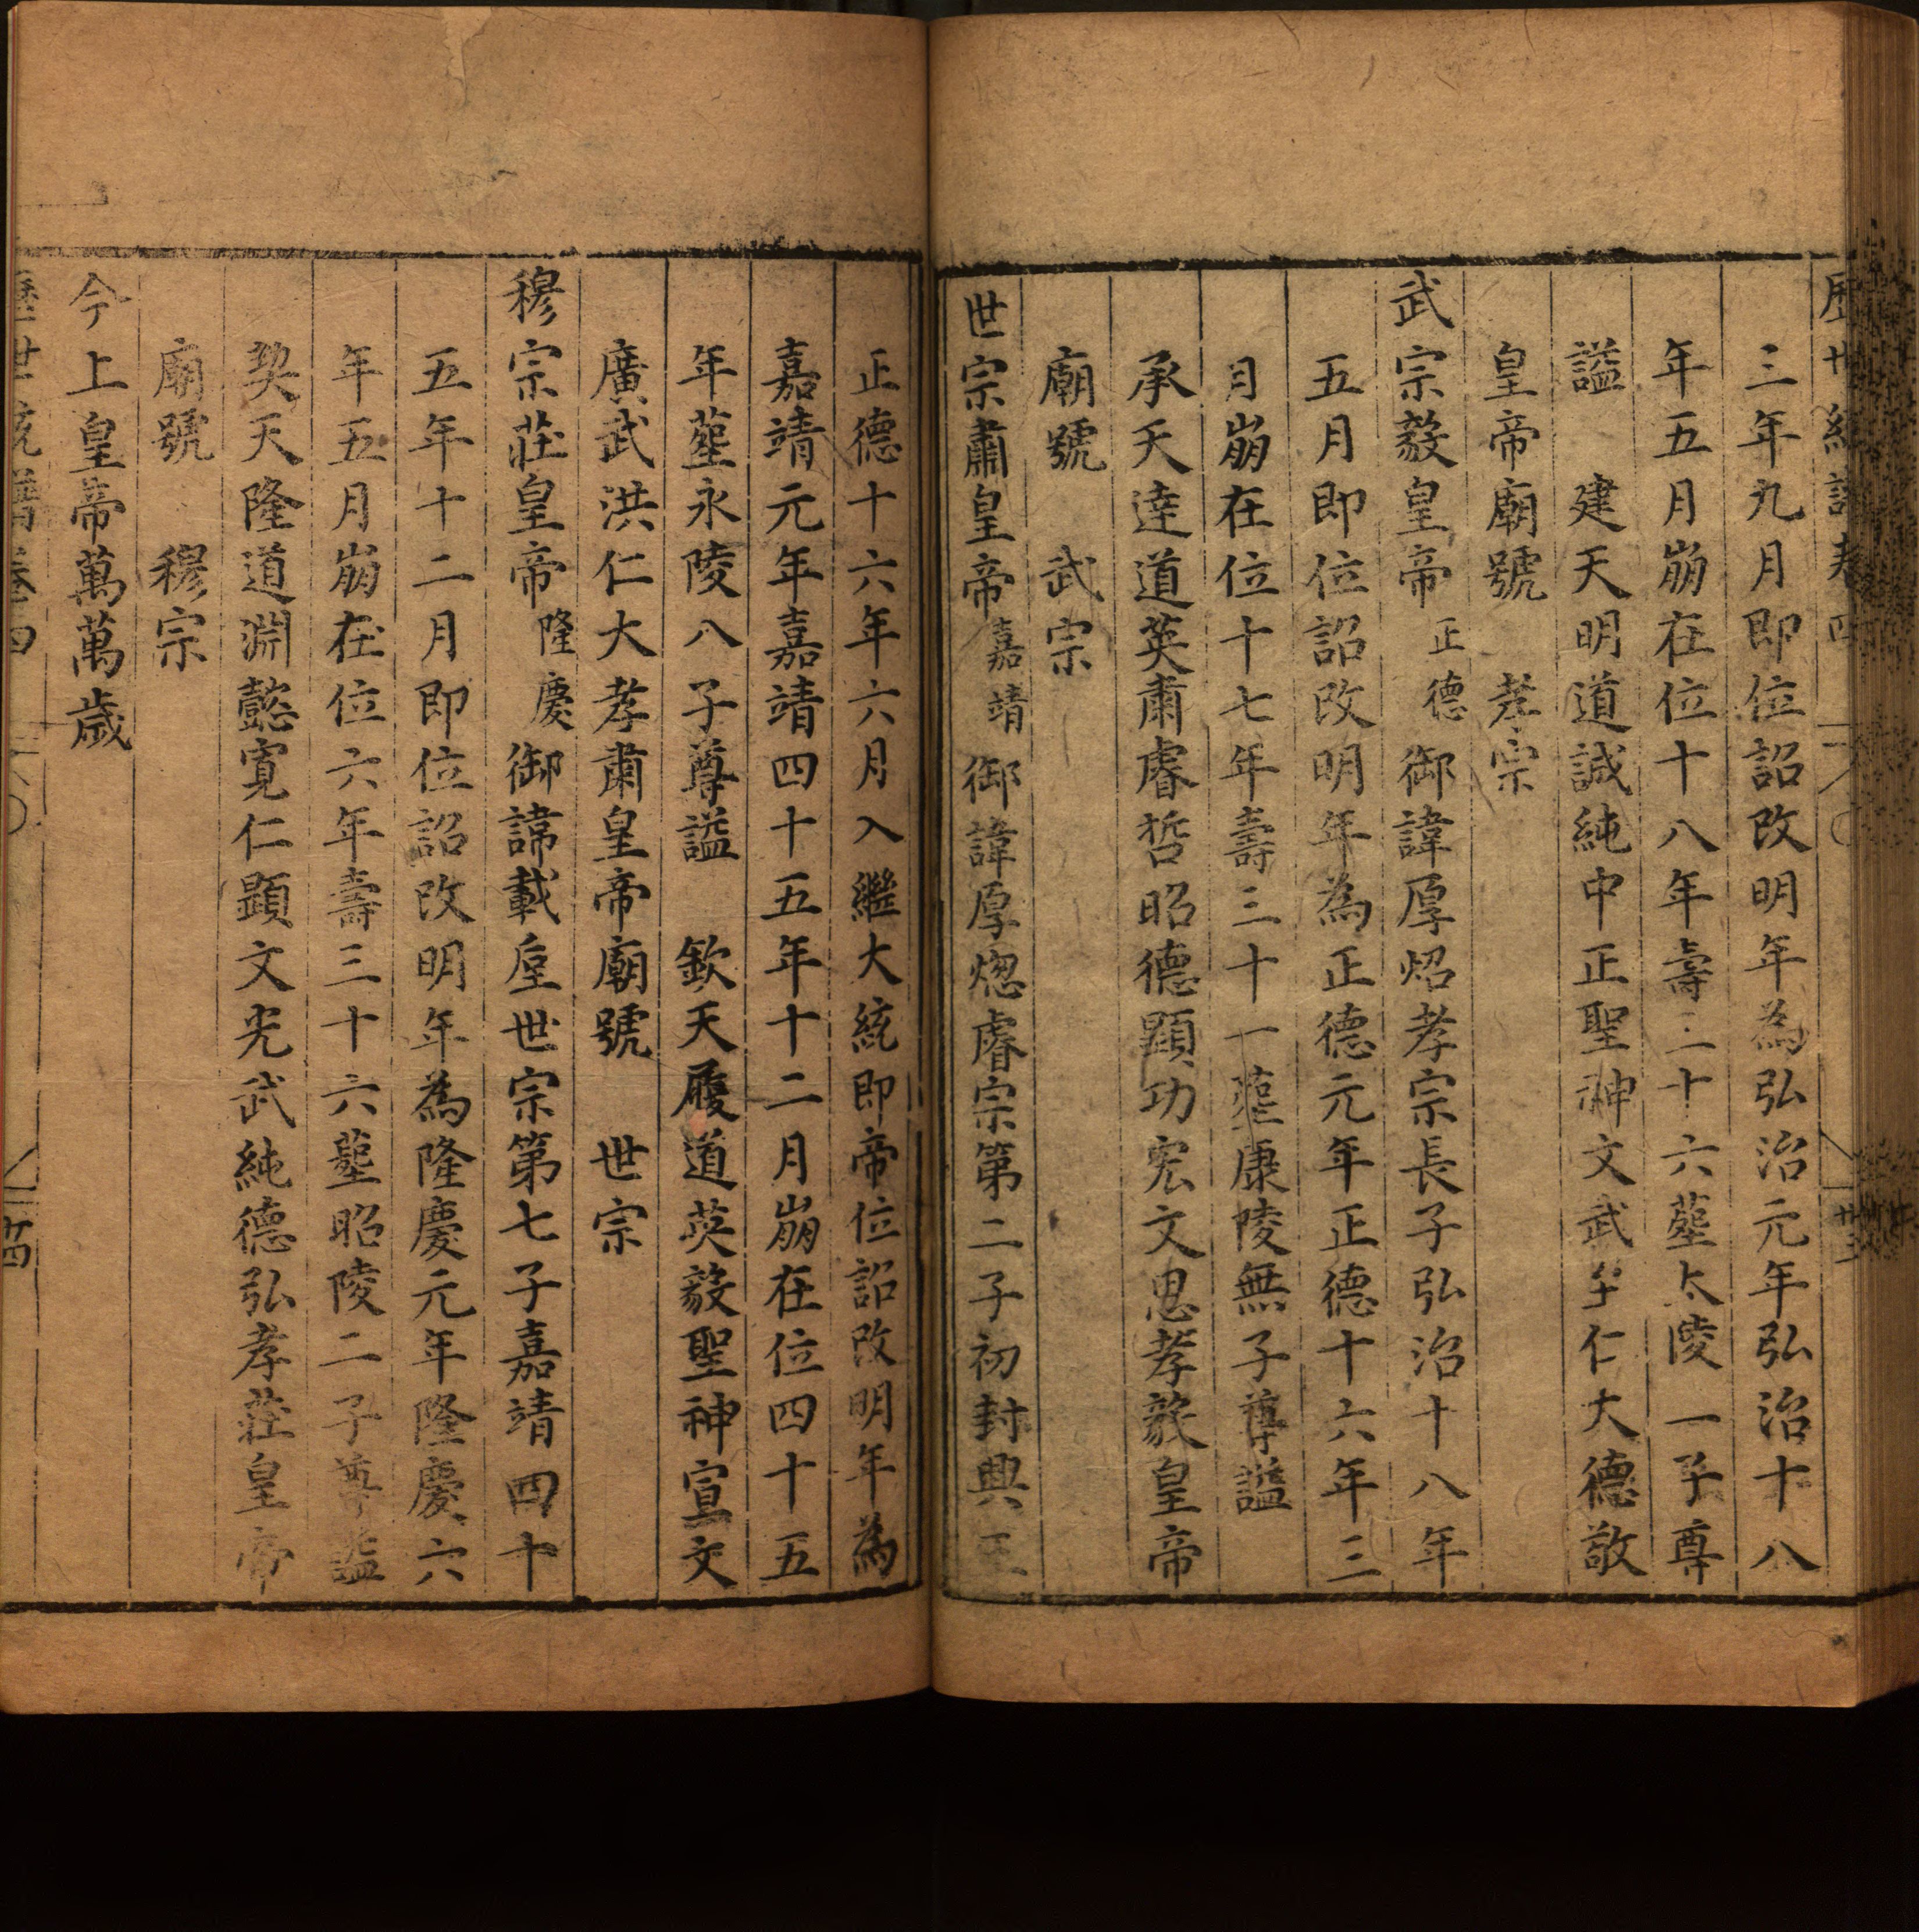 歷世統譜卷四 卅三
三年九月即位詔改明年為弘治元年弘治十八
年五月崩在位十八年壽三十六塟太陵一子尊
謚 建天明道誠純中正聖神文武至仁大德敬
皇帝廟號 孝宗
武宗毅皇帝正德御諱厚炤孝宗長子弘治十八年
五月即位詔改明年為正德元年正德十六年三
月崩在位十七年壽三十一塟康陵無子尊謚
承天達道英肅睿哲昭德顯功宏文思孝毅皇帝
廟號 武宗
世宗肅皇帝嘉靖御諱厚熜睿宗第二子初封興王
正德十六年六月入繼大統即帝位詔改明年為
嘉靖元年嘉靖四十五年十二月崩在位四十五
年塟永陵八子尊謚 欽天履道英毅聖神宣文
廣武洪仁大孝肅皇帝廟號 世宗
穆宗莊皇帝隆慶御諱載垕世宗第七子嘉靖四十
五年十二月即位詔改明年為隆慶元年隆慶六
年五月崩在位六年壽三十六塟昭陵二子尊謚
契天隆道淵懿寬仁顯文光武純德弘孝莊皇帝
廟號 穆宗
今上皇帝萬萬歲
歷世統譜卷四 卅四